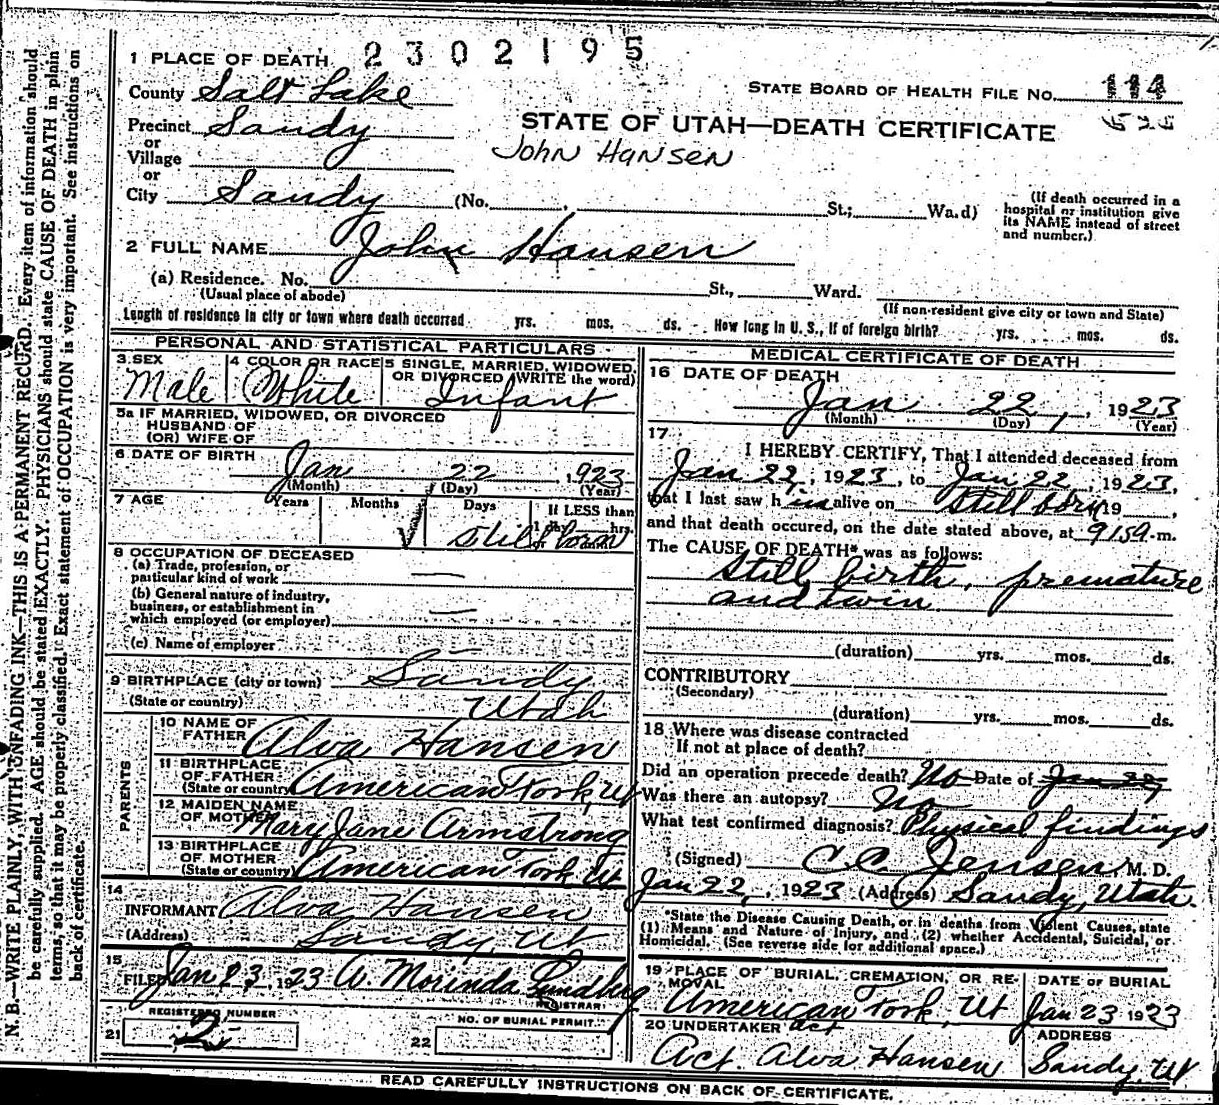 2302195
1 PLACE OF DEATH
STATE BOARD OF HEALTH FILE NO. 114
County Salt Lake
Precinct Sandy
STATE OF UTAH—DEATH CERTIFICATE
or
Village
John Hansen
or
City Sandy (No. , St.; Wa.d)
(If death occurred in a hospital or institution give its NAME instead of street and number.)
2 FULL NAME John Hansen
(a) Residence. No. St., Ward.
(Usual place of abode) (If non-resident give city or town and State)
Length of residence in city or town where death occurred yrs. mos. ds. How long in U. S., if of foreign birth? yrs. mos. ds.
PERSONAL AND STATISTICAL PARTICULARS
3 SEX Male
4 COLOR OR RACE White
5 SINGLE, MARRIED, WIDOWED, OR DIVORCED (WRITE the word) Infant
5a IF MARRIED, WIDOWED, OR DIVORCED
HUSBAND OF
(OR) WIFE OF
6 DATE OF BIRTH Jan 22, 1923
(Month) (Day) (Year)
7 AGE Years Months Days If LESS than 1 day hrs.
Stillborn
8 OCCUPATION OF DECEASED
(a) Trade, profession, or
particular kind of work —
(b) General nature of industry,
business, or establishment in
which employed (or employer) —
(c) Name of employer —
9 BIRTHPLACE (city or town) Sandy
(State or country) Utah
PARENTS
10 NAME OF FATHER Alva Hansen
11 BIRTHPLACE OF FATHER (State or country) American Fork, Ut
12 MAIDEN NAME OF MOTHER Mary Jane Armstrong
13 BIRTHPLACE OF MOTHER (State or country) American Fork Ut
14
INFORMANT Alva Hansen
(Address) Sandy, Ut
15
FILED Jan 23, 1923 A. Morinda Lundberg
REGISTRAR
REGISTERED NUMBER
21 2
NO. OF BURIAL PERMIT
22
MEDICAL CERTIFICATE OF DEATH
16 DATE OF DEATH
Jan 22, 1923
(Month) (Day) (Year)
17
I HEREBY CERTIFY, That I attended deceased from
Jan 22, 1923, to Jan 22, 1923,
that I last saw h im alive on Stillborn 19 ,
and that death occured, on the date stated above, at 9159.m.
The CAUSE OF DEATH* was as follows:
Still birth, premature
and twin
(duration) yrs. mos. ds.
CONTRIBUTORY
(Secondary)
(duration) yrs. mos. ds.
18 Where was disease contracted
If not at place of death?
Did an operation precede death? No Date of Jan 22
Was there an autopsy? No
What test confirmed diagnosis? Physical findings
(Signed) C C Jensen, M. D.
Jan 22, 1923 (Address) Sandy, Utah.
*State the Disease Causing Death, or in deaths from Violent Causes, state
(1) Means and Nature of Injury, and (2) whether Accidental, Suicidal, or
Homicidal. (See reverse side for additional space.)
19 PLACE OF BURIAL, CREMATION, OR REMOVAL American Fork, Ut
DATE OF BURIAL Jan 23 1923
20 UNDERTAKER act
Act. Alva Hansen
ADDRESS
Sandy, Ut
READ CAREFULLY INSTRUCTIONS ON BACK OF CERTIFICATE.
N. B.—WRITE PLAINLY, WITH UNFADING INK—THIS IS A PERMANENT RECORD. Every item of information should
be carefully supplied. AGE should be stated EXACTLY. PHYSICIANS should state CAUSE OF DEATH in plain
terms, so that it may be properly classified. Exact statement of OCCUPATION is very important. See instructions on
back of certificate.